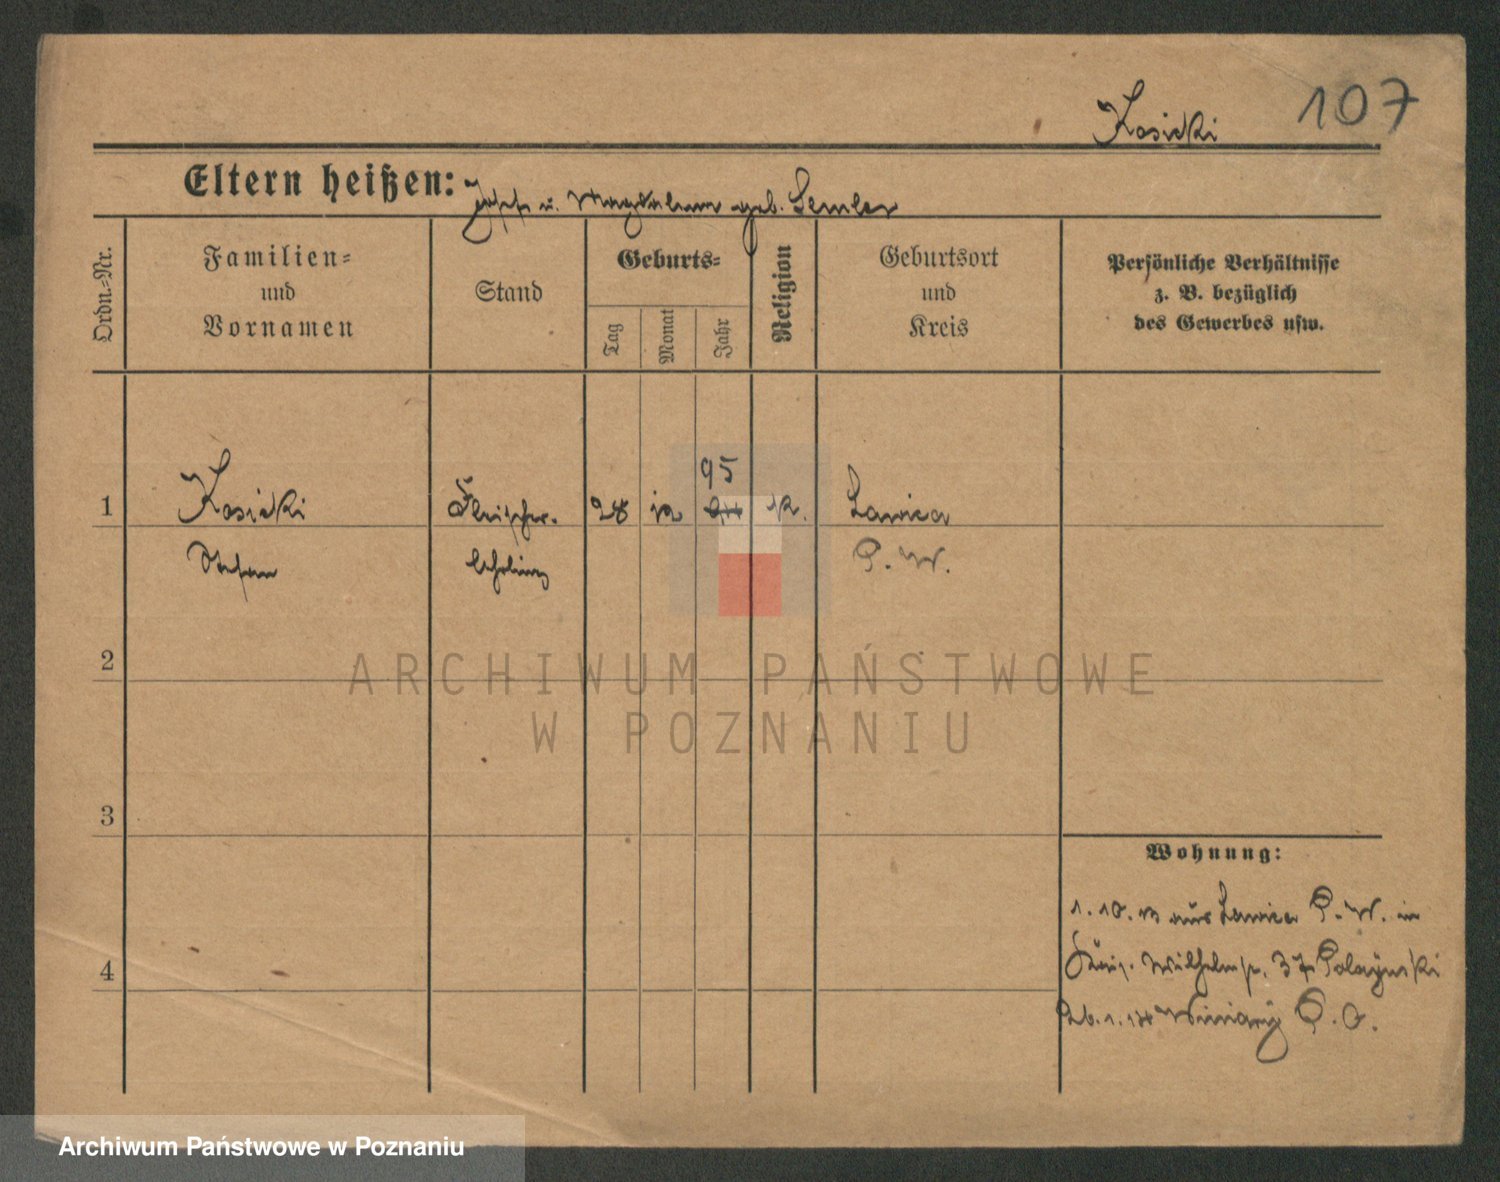 Kosicki 107
Eltern heißen: Josef u. Magdalena geb. Semler
Ordn.-Nr.
Familien-
und
Vornamen
Stand
Geburts-
Tag
Monat
Jahr
Religion
Geburtsort
und
Kreis
Persönliche Verhältnisse
z. B. bezüglich
des Gewerbes usw.
95
1 Kosicki Fleischer- 28 12 k. Lawica
Stefan lehrling P. W.
2
3
4
Wohnung:
1.10.13 aus Lawica P. W. in
Wilhelmstr. 37
26.1.14 Winiary P. O.
ARCHIWUM PAŃSTWOWE
W POZNANIU
Archiwum Państwowe w Poznaniu